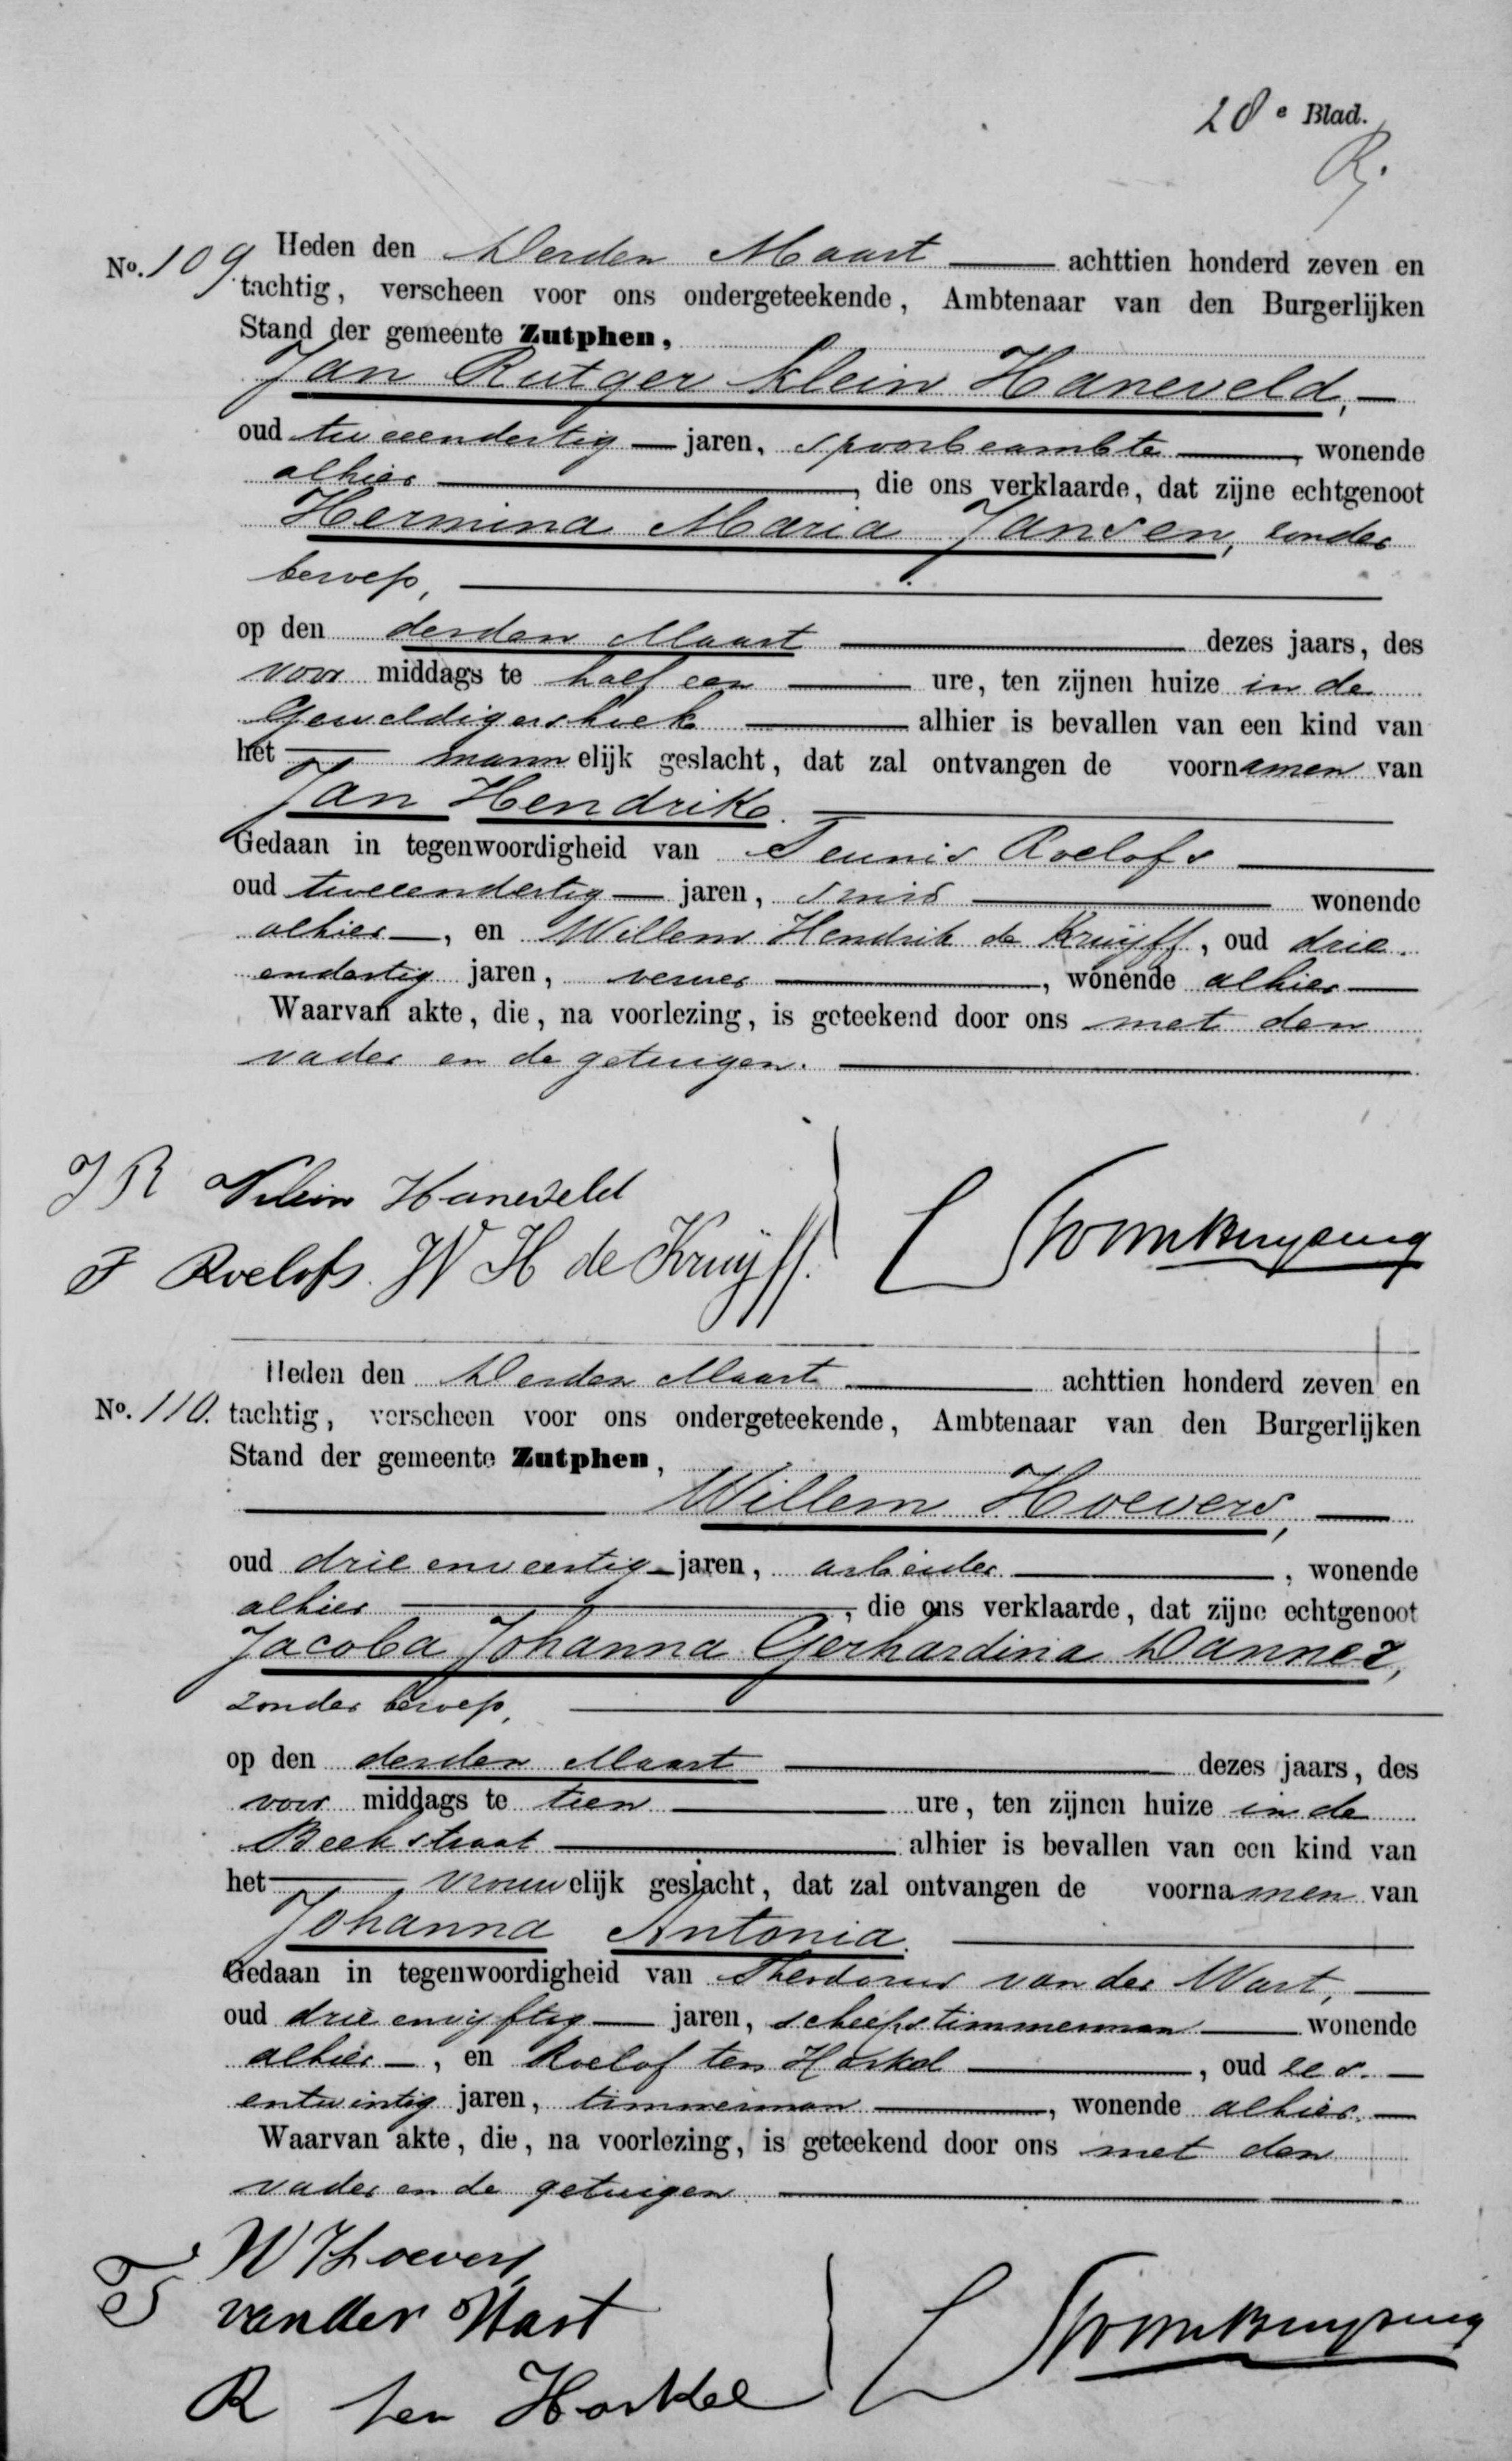 28e Blad.
No. 109 Heden den Derden Maart achttien honderd zeven en
tachtig, verscheen voor ons ondergeteekende, Ambtenaar van den Burgerlijken
Stand der gemeente Zutphen,
Jan Rutger Klein Haneveld,
oud tweeendertig jaren, spoorbeambte, wonende
alhier, die ons verklaarde, dat zijne echtgenoot
Hermina Maria Jansen, zonder
beroep,
op den derden Maart dezes jaars, des
voor middags te half een ure, ten zijnen huize in de
Geweldigershoek alhier is bevallen van een kind van
het mannelijk geslacht, dat zal ontvangen de voornamen van
Jan Hendrik.
Gedaan in tegenwoordigheid van Teunis Roelofs
oud tweeendertig jaren, smid wonende
alhier, en Willem Hendrik de Kruyff, oud drie
endertig jaren, verver, wonende alhier
Waarvan akte, die, na voorlezing, is geteekend door ons met den
vader en de getuigen.
J R Klein Haneveld
T Roelofs. W H de Kruyff.
Heden den Derden Maart achttien honderd zeven en
No. 110. tachtig, verscheen voor ons ondergeteekende, Ambtenaar van den Burgerlijken
Stand der gemeente Zutphen,
Willem Hoevers,
oud drie enveertig jaren, arbeider, wonende
alhier, die ons verklaarde, dat zijne echtgenoot
Jacoba Johanna Gerhardina Danner,
zonder beroep,
op den derden Maart dezes jaars, des
voor middags te tien ure, ten zijnen huize in de
Beekstraat alhier is bevallen van een kind van
het vrouwelijk geslacht, dat zal ontvangen de voornamen van
Johanna Antonia.
Gedaan in tegenwoordigheid van Theodorus van der Wart,
oud drie envijftig jaren, scheepstimmerman wonende
alhier, en Roelof ten Harkel, oud zes
entwintig jaren, timmerman, wonende alhier.
Waarvan akte, die, na voorlezing, is geteekend door ons met den
vader en de getuigen.
W Hoevers
T van der Wart
R ten Harkel